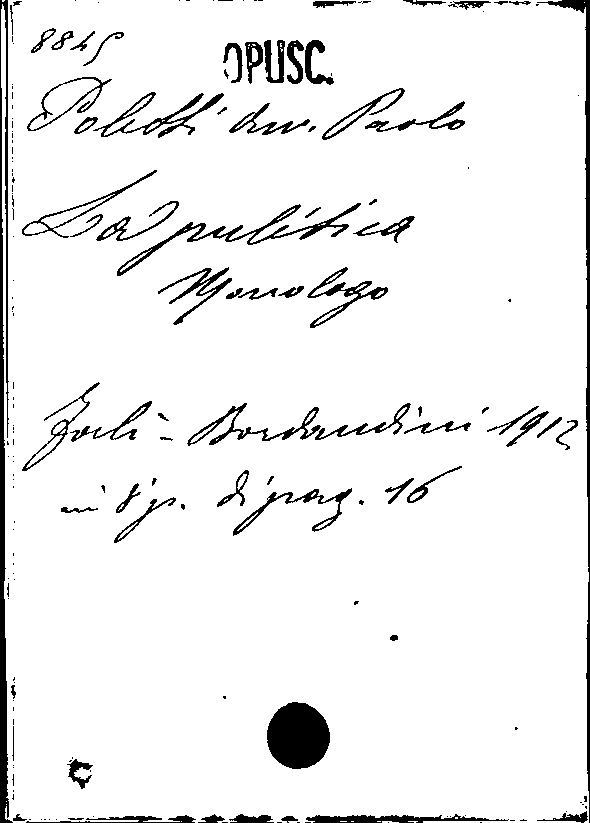 8845
OPUSC.
Poletti avv. Paolo
La pulitica
Monologo
Forlì - Bordandini 1912
in 8 p. di pag. 16